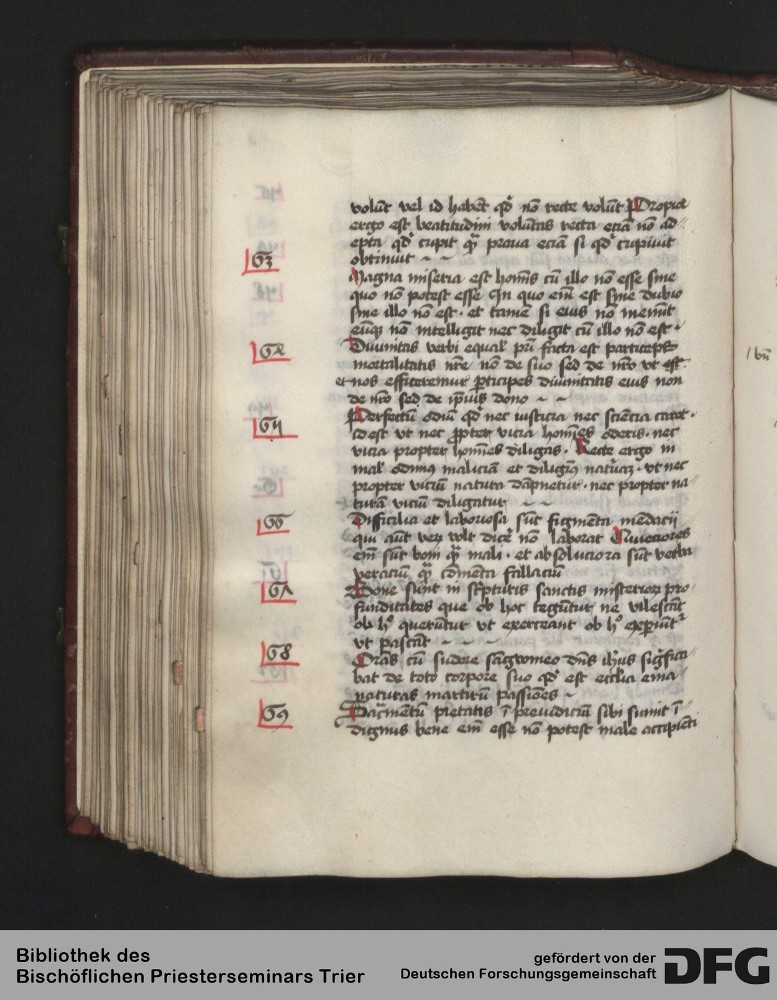 volūt vel id habēt qd̛ nō recte volūt Propior
ergo est beatitudini volūtas recta eciā nō ad
epta qd̛ cupit q̄ praua eciā si qd̛ cupiuit
obtinuit ~ ~
63 Magna miseria est hoīs cū illo nō esse sine
quo nō potest esse In quo em̄ est sine dubio
sine illo nō est · et tamē si eius nō meminit
eūq nō intelligit nec diligit cū illo nō est ·
64 Diuinitas verbi equal̛ pr̄i facta est particeps
mortalitatis nr̄e nō de suo sed de nr̄o vt
et nos efficeremur pticipes diuinitatis eius non
de nr̄o sed de ipsius dono ~ ~
65 Perfectū odiū qd̛ nec iusticia nec sciēcia caret ·
id est vt nec ꝓpter vicia hoīes oderis · nec
vicia propter hoīes diligas · Recte ergo in
mal̛ odimꝰ maliciā et diligimꝰ naturā · vt nec
propter viciū natura dāpnetur · nec propter na
turā viciū diligatur ~ ~
66 Difficilia et laboriosa sūt figmēta mēdacij
qui aūt verū vult dicē nō laborat Quieciores
em̄ sūt boni q̄ mali · et absoluciora sūt verba
veraciū q̄ cōmenta fallaciū
67 Bone sunt in scripturis sanctis misterioꝝ pro
funditates que ob hoc tegūtur ne vilescāt
ob hͦ querūtur vt exerceant ob hͦ aperiūt᷑
vt pascāt ~ ~ ~
68 Orās cū sudore sāgwineo dn̄s ih̄us sig̛fica
bat de toto corpore suo qd̛ est ecclīa ema
naturas martirū passiones ~
69 Sacrmētū pietatis ī preiudiciū sibi sumit ī
dignus bene em̄ esse nō potest male accipiēti
bn̄
Bibliothek des
Bischöflichen Priesterseminars Trier
gefördert von der
Deutschen Forschungsgemeinschaft
DFG